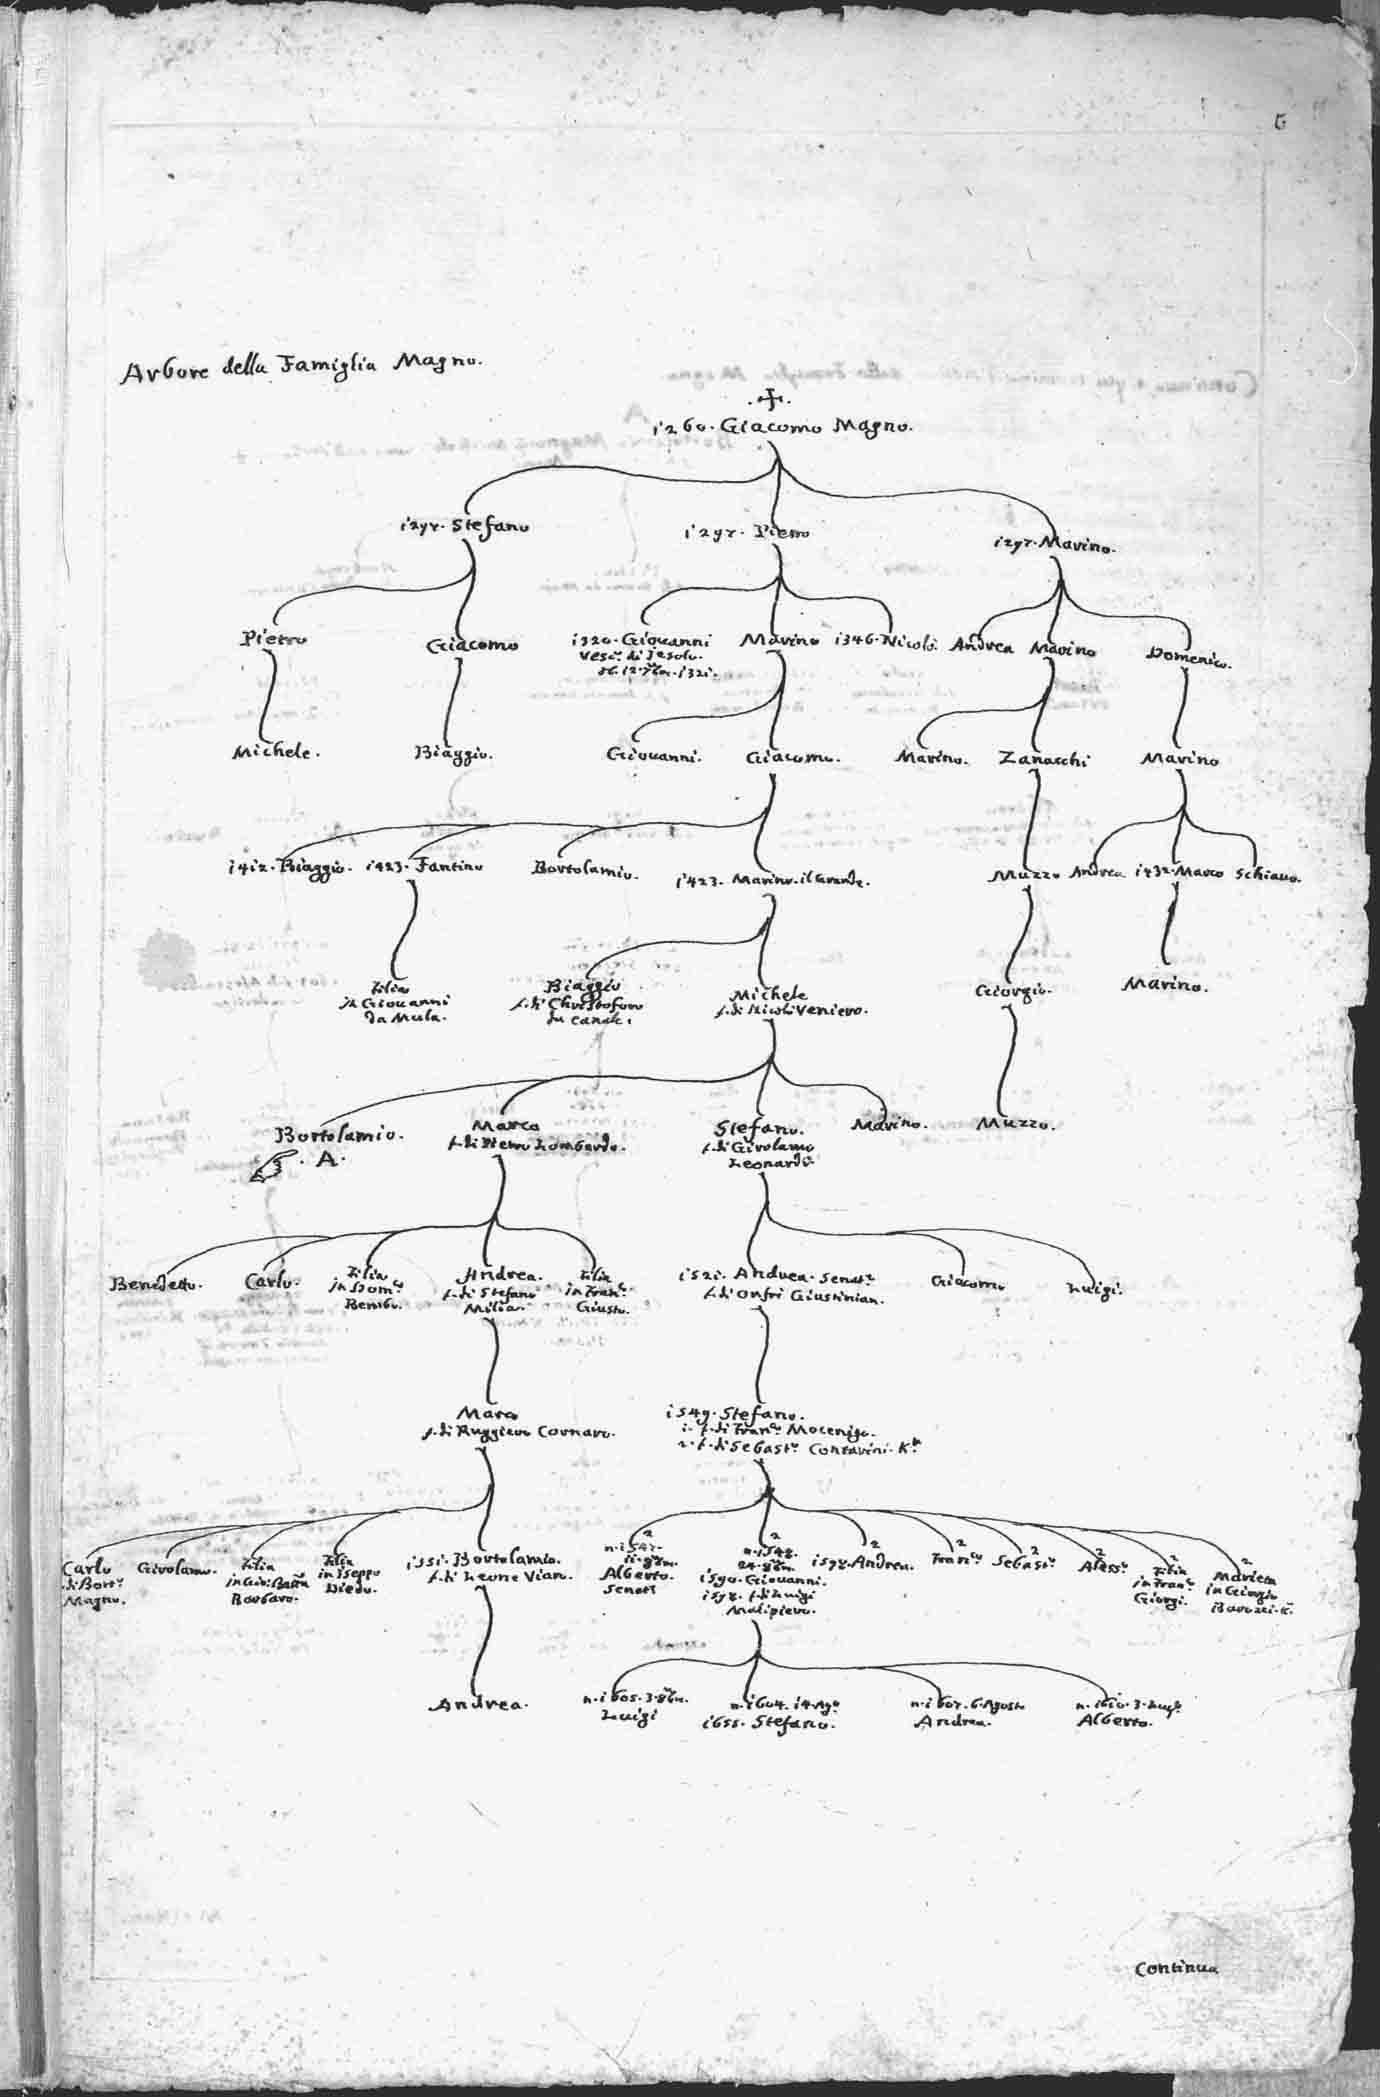 G
Arbore della Famiglia Magno.
1260. Giacomo Magno.
1297. Stefano
1297. Pietro
1297. Marino.
Pietro
Giacomo
1320. Giovanni
Vesc.º di Jesolo.
Marino
1346. Nicolò.
Andrea
Marino
Domenico.
Michele.
Biaggio.
Giovanni.
Giacomo.
Marino.
Zanacchi
Marino
1412. Biaggio.
1423. Fantino
Bortolamio.
1423. Marino. il Grande.
Muzzo
Andrea
1432. Marco
Schiavo.
Filia
in Giovanni
da Mula.
Biaggio
f. di Christoforo
da Canale.
Michele
f. di Nicolò Veniero.
Giorgio.
Marino.
Bortolamio.
. A .
Marco
f. di Pietro Lombardo.
Stefano.
f. di Girolamo
Leonardi
Marino.
Muzzo.
Benedetto.
Carlo.
Filia
in Dom.co
Bembo.
Andrea.
f. di Stefano
Milian
Filia
in Fran.co
Giusto.
1521. Andrea. Senat.r
f. di Onfrè Giustinian.
Giacomo
Luigi.
Marco
f. di Ruggiero Cornaro.
1549. Stefano.
1. f. di Fran.co Mocenigo.
2. f. di Sebast.º Contarini. K.r
Carlo
di Bort.º
Magno.
Girolamo.
Filia
in Gio: Batta
Barbaro.
Filia
in Iseppo
Diedo.
1551. Bortolamio.
f. di Leone Vian.
2
n. 1547.
11. 8bre.
Alberto.
Senatr
2
24. 8bre.
1590. Giovanni.
f. di Luigi
Malipiero.
2
Andrea.
2
Fran.co
2
Sebast.º
2
Aless.º
2
Filia
in Fran.co
Giorgi.
2
Marieta
in Giorgio
Barozzi. K.
Andrea.
n. 1605. 3. 8bre.
Luigi
n. 1604. 14. Ago
1655. Stefano.
n. 1607. 6. Agosto
Andrea.
n. 1610. 3. Lug.
Alberto.
Continua